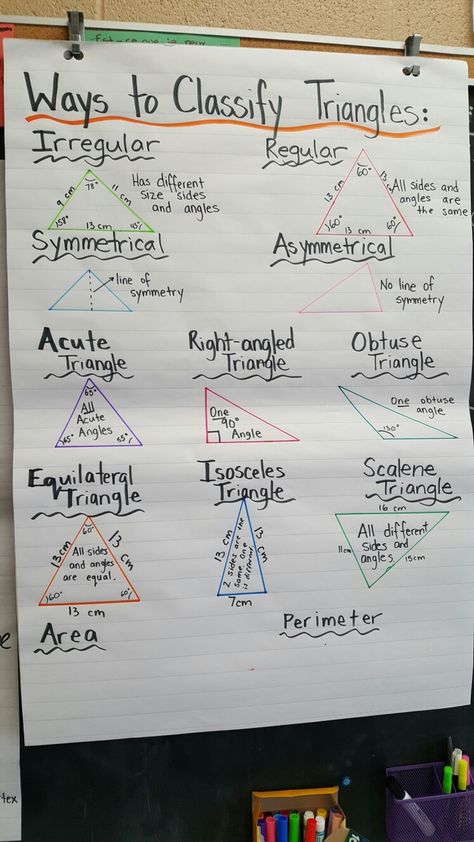 Ways to Classify Triangles:
Irregular
9 cm
78°
11 cm
13 cm
Has different
size sides
and angles
Regular
60°
13 cm
60°
60°
13 cm
All sides and
angles are
the same
Symmetrical
line of
symmetry
Asymmetrical
No line of
symmetry
Acute
Triangle
65°
All
Acute
Angles
65°
55°
Right-angled
Triangle
One
90°
Angle
Obtuse
Triangle
One obtuse
angle
130°
Equilateral
Triangle
60°
13 cm
13 cm
All sides
and angles
are equal.
60°
60°
13 cm
Isosceles
Triangle
13 cm
13 cm
2 sides are the
same. One
is different.
7cm
Scalene
Triangle
16 cm
11cm
15cm
All different
sides and
angles.
Area
Perimeter